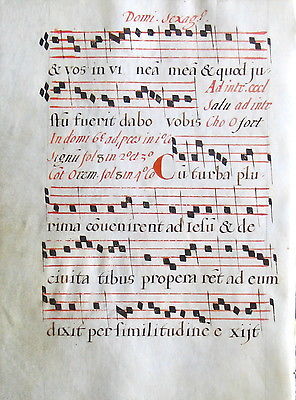 Domi. Sexagſ.
& vos in vi neā meā & quod ju
Ad intr. eccl
Salu ad intr
stū fuerit dabo vobis Cho Ofort
In domi 6ª ad pces in 1º
Signū fol 8 in 2º et 3º
Cot Orem fol 8 in 4º
Cū turba plu
rima covenirent ad Iesū & de
civita tibus propera rēt ad eum
dixit per similitudine e xijt